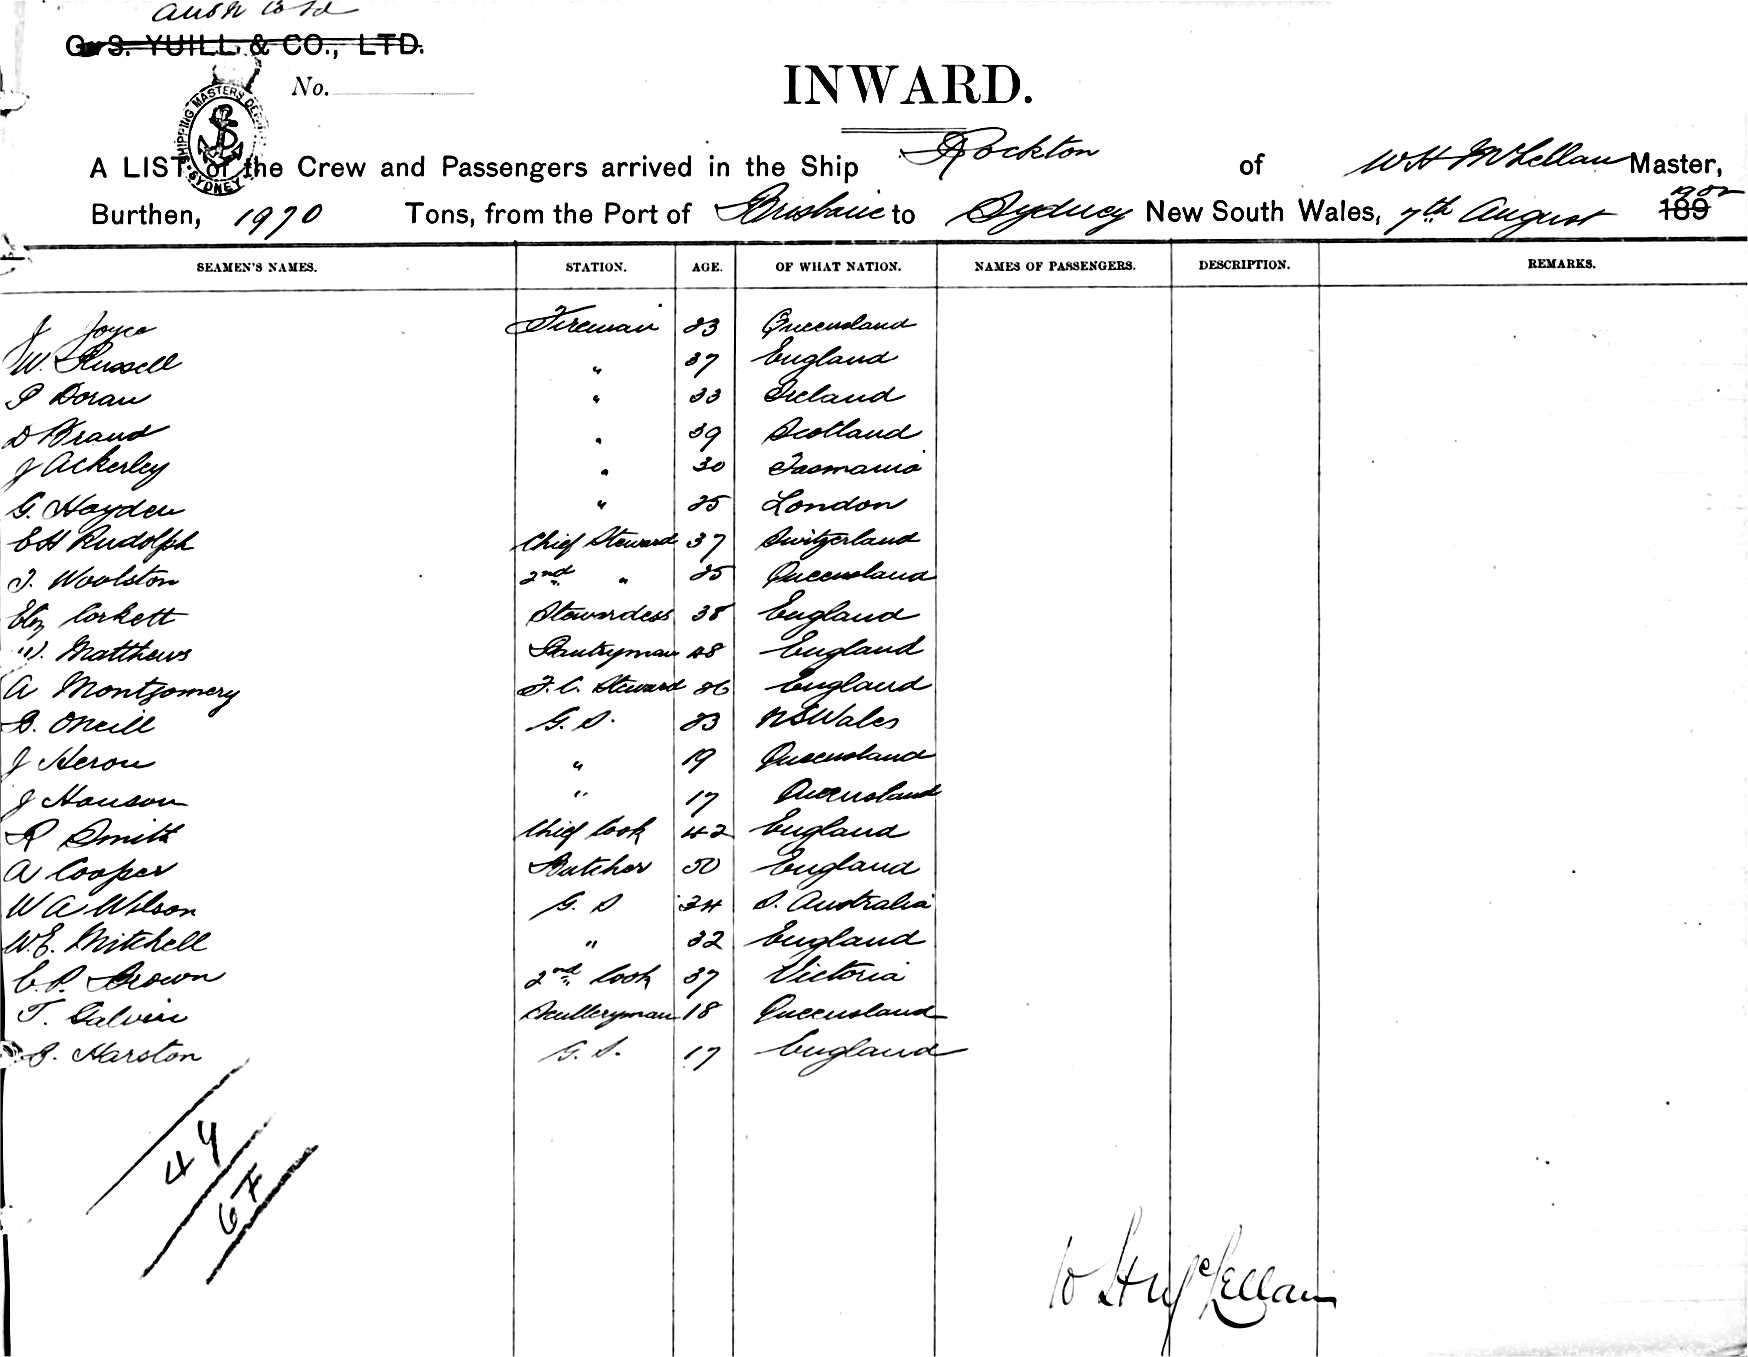 G. S. YUILL & CO., LTD.
No.
INWARD.
SHIPPING MASTERS SYDNEY
A LIST of the Crew and Passengers arrived in the Ship Rockton of W H McLellan Master,
Burthen, 1970 Tons, from the Port of Brisbane to Sydney New South Wales, 7th August 189 1902
SEAMEN'S NAMES. STATION. AGE. OF WHAT NATION. NAMES OF PASSENGERS. DESCRIPTION. REMARKS.
J Joyce Fireman 23 Queensland
W. Russell " 37 England
P Doran " 33 Ireland
D Brand " 39 Scotland
J Ackerley " 30 Tasmania
G. Hayden " 25 London
E H Rudolph Chief Steward 37 Switzerland
T. Woolston 2nd " 25 Queensland
Eliz Corkett Stewardess 38 England
W. Matthews Pantryman 48 England
A Montgomery F. C. Steward 26 England
S. ONeill G. S. 23 N S Wales
J Heron " 19 Queensland
J Hanson " 17 Queensland
R Smith Chief Cook 42 England
A Cooper Butcher 50 England
W A Wilson G. S 34 S. Australia
W. E. Mitchell " 32 England
C. P. Brown 2nd Cook 37 Victoria
T. Galvin Sculleryman 18 Queensland
S. Harston G. S. 17 England
W H McLellan